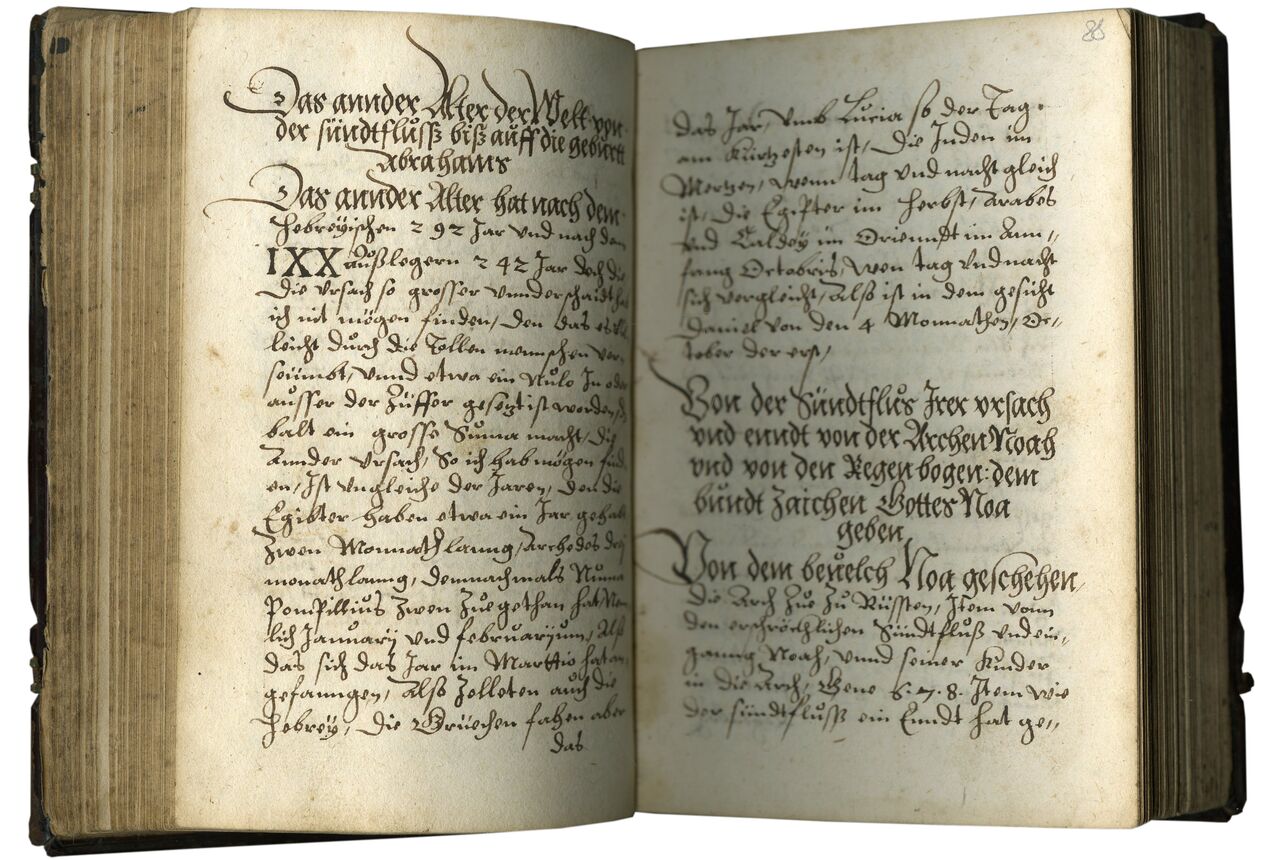 Das annder Alter der Welt von
der sündtflusß biß auff die geburtt
Abrahams
Das annder Alter hat nach dem
Hebreyischen 292 Jar vnd nach den
IXX außlegern 242 Jar doch die
die vrsach so grosser vnnderschaidt
ich nit mögen finden, den das es
leicht durch die Tollen mennschen ver-
seümbt, vnnd etwa ein Nulo In oder
ausser der Züffer gesetzt ist worden,
balt ein grosse Suma macht, die
Annder vrsach, So ich hab mögen find
en, Ist vngleiche der Jaren, den die
Egibter haben etwa ein Jar gehabt
Zwen Monnath lanng, Archedes
monath lanng, demnachmals Numa
Pompillius Zwen Zuegethan hat
lich January vnd februaryum, Alß
das sich das Jar im Marttio hat an
gefanngen, Alß Zelleten auch die
Hebrey, Die Griechen fahen aber
das
88
das Jar, vmb Lucia so der Tag
am Kürtzesten ist, Die Juden im
Mertzen, wenn tag vnd nacht gleich
ist, Die Egipter im Herbst, Arabes
vnd Caldey im Oriennt im Ann-
fang Octobris, wen tag vnd nacht
sich vergleicht, Alß ist in dem gesicht
Daniel von den 4 Monnathen, Oc-
tober der erst,
Von der Sündtflus Irer vrsach
vnd enndt von der Archen Noah
vnd von den Regen bogen: dem
bundt Zaichen Gottes Noa
geben
Von dem beuelch Noa geschehen,
die Arch Zue Zu Rüsten, Item vonn
den erschröchlichen Sündtfluß vnd ein-
ganng Noah, vnnd seiner Kinder
in die Arch, Gene 6. 7. 8. Item wie
der sündtflusß ein Enndt hat ge-